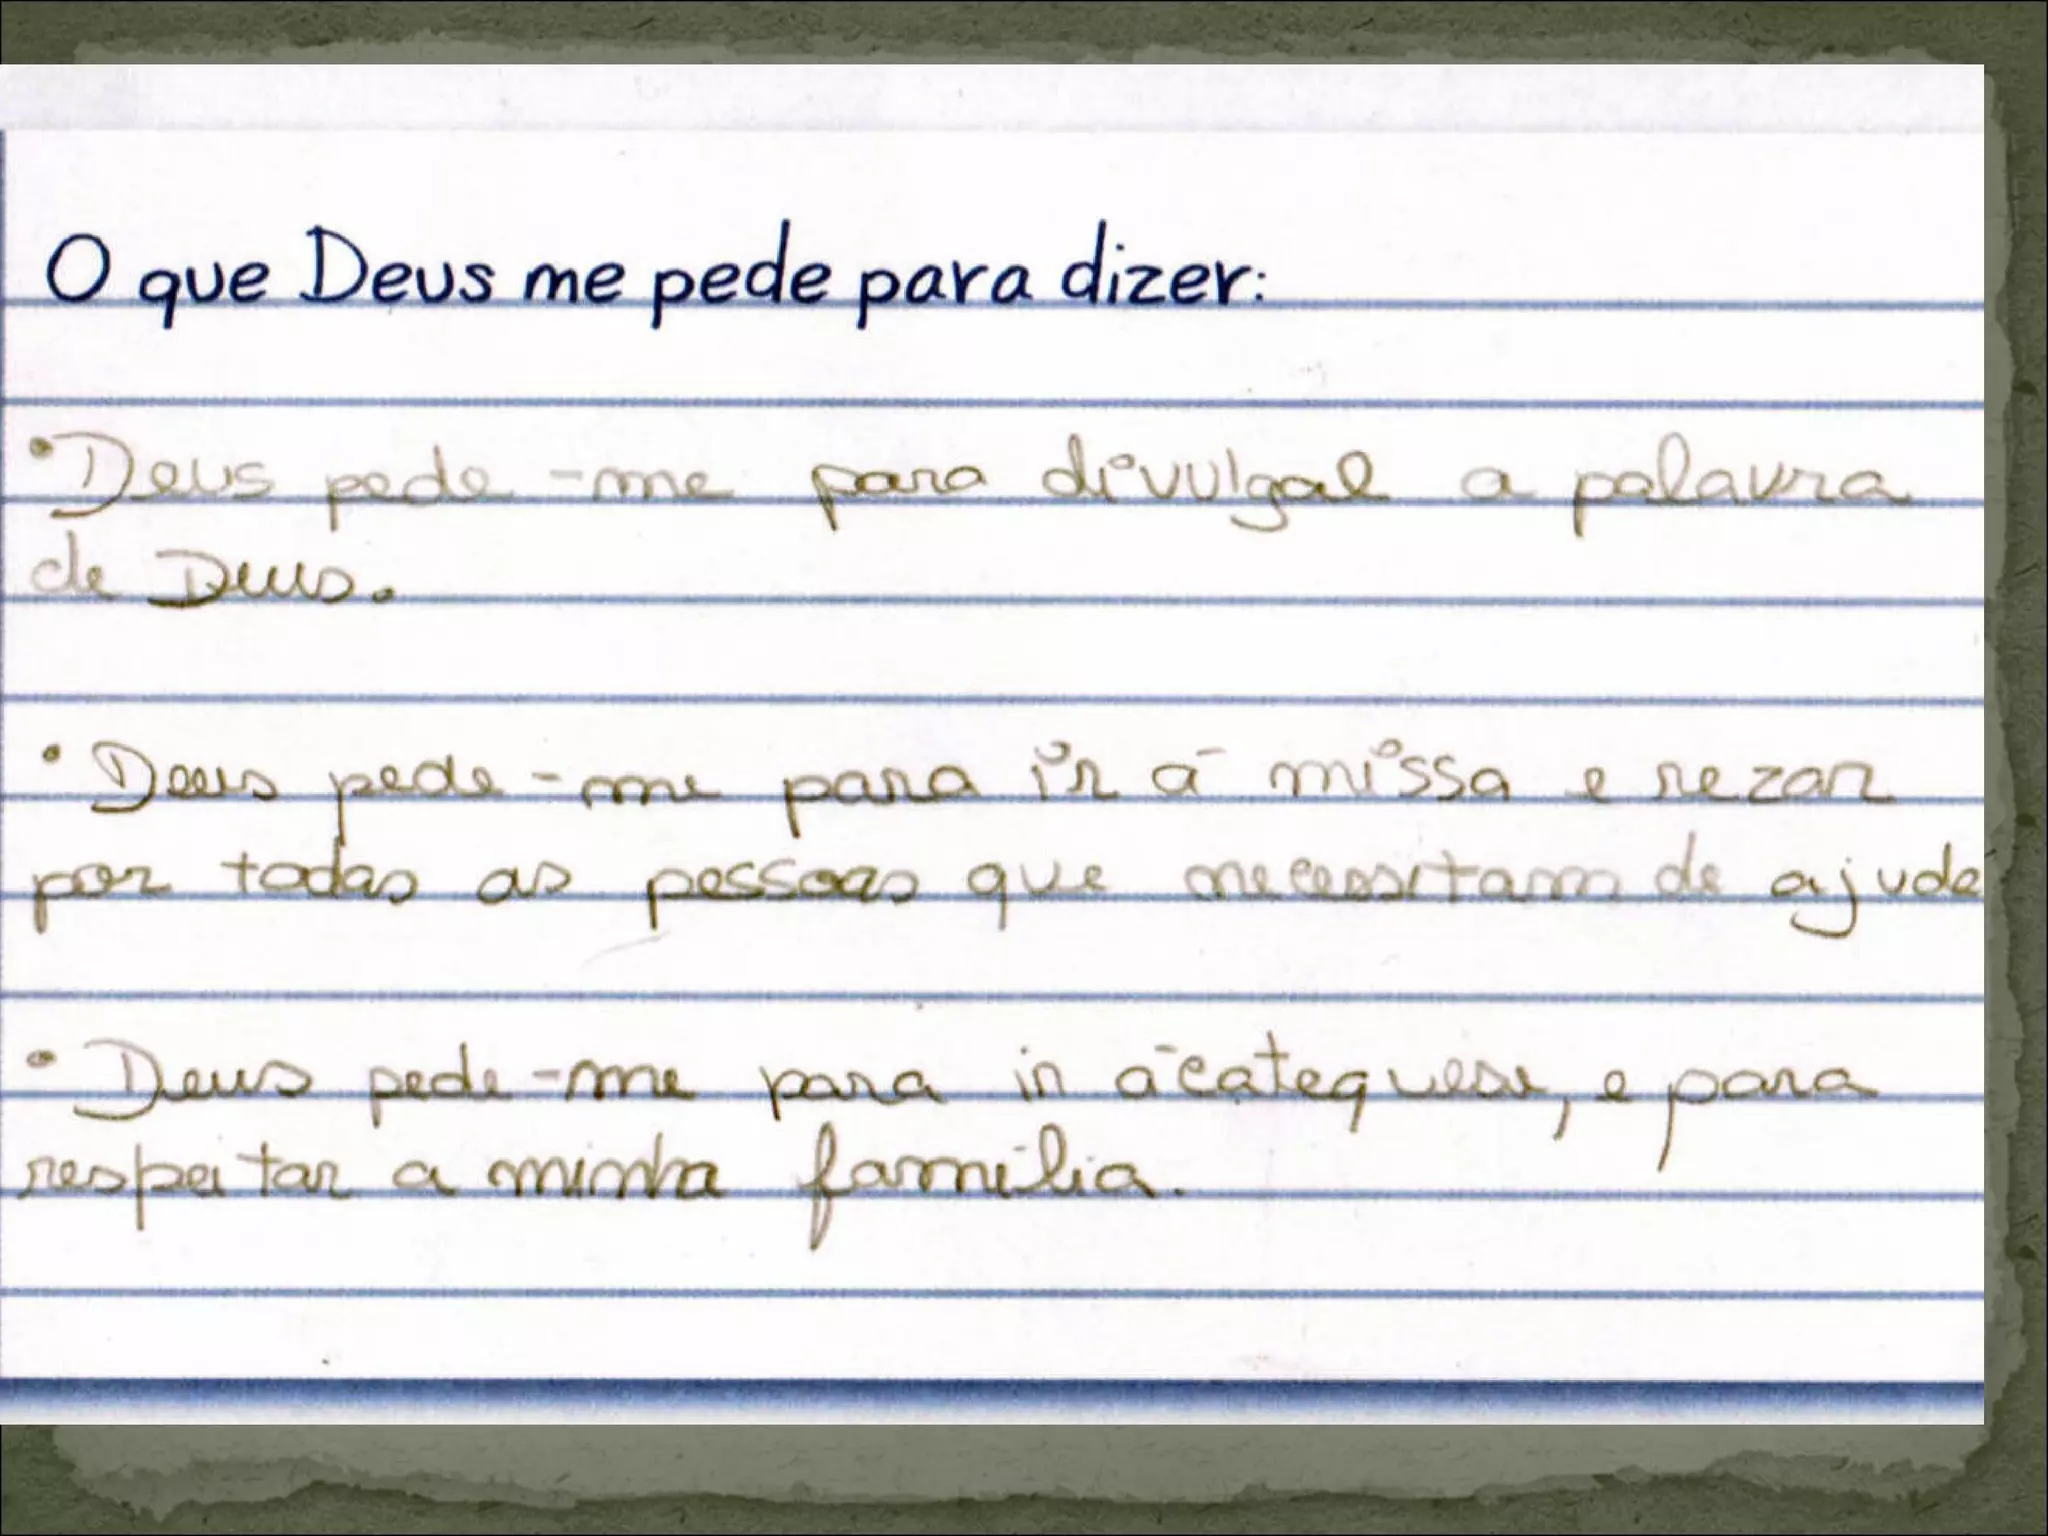 O que Deus me pede para dizer:
• Deus pede-me para divulgal a palavra
de Deus.
• Deus pede-me para ir á missa e rezar
por todas as pessoas que necessitam de ajuda
• Deus pede-me para ir á catequese, e para
respeitar a minha família.